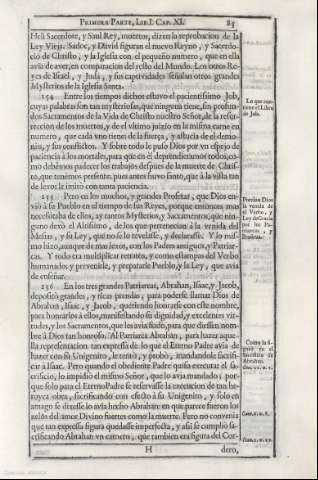 PRIMERA PARTE, LIB. I. CAP. XI. 85
Heli Sacerdote, y Saul Rey, muertos, dizen la reprobacion de la
Ley Vieja. Sadoc, y David figuran el nuevo Reyno, y Sacerdo-
cio de Christo, y la Iglesia con el pequeño numero, que en ella
avia de aver, en comparacion del resto del Mundo. Los otros Re-
yes de Israel, y Juda, y sus captividades señalan otros grandes
Mysterios de la Iglesia Santa.
154 Entre los tiempos dichos estuvo el pacientissimo Job,
cuyas palabras son tan mysteriosas, que ninguna tiene, sin profun-
dos Sacramentos de la Vida de Christo nuestro Señor, de la resur-
reccion de los muertos, y de el vltimo juizio en la misma carne en
numero, que cada vno tiene de la fuerça, y astucia de el demo-
nio, y sus conflictos. Y sobre todo le puso Dios por vn espejo de
paciencia à los mortales, para que en él deprendiessemos todos, co-
mo debemos padecer los trabajos despues de la muerte de Chris-
to, que tenemos presente, pues antes huvo santo, que à la vista tan
de lexos le imitò con tanta paciencia.
155 Pero en los muchos, y grandes Profetas, que Dios en-
viò à su Pueblo en el tiempo de sus Reyes, porque entonces mas
necessitaba de ellos, ay tantos Mysterios, y Sacramentos, que nin-
guno dexò el Altissimo, de los que pertenecian à la venida del
Mesias, y su Ley, que no se lo revelasse, y declarasse. Y lo mis-
mo hizo, aunque de mas lexos, con los Padres antiguos, y Patriar-
cas. Y todo era multiplicar retratos, y como estampas del Verbo
humanado, y prevenirle, y prepararle Pueblo, y la Ley, que avia
de enseñar.
156 En los tres grandes Patriarcas, Abrahan, Isaac, y Jacob,
depositò grandes, y ricas prendas, para poderse llamar Dios de
Abrahan, Isaac, y Jacob, queriendo honrarse con este nombre,
para honrarlos à ellos, manifestando su dignidad, y excelentes vir-
tudes, y los Sacramentos, que les avia fiado, para que diessen nom-
bre à Dios tan honroso. Al Patriarca Abrahan, para hazer aque-
lla representacion tan expressa de lo que el Eterno Padre avia de
hazer con su Vnigenito, le tentò, y probò, mandandole sacrifi-
car à Isaac. Pero quando el obediente Padre quiso executar el sa-
crificio, lo impidiò el mismo Señor, que lo avia mandado; por-
que solo para el Eterno Padre se reservasse la execucion de tan he-
royca obra, sacrificando con efecto à su Vnigenito, y solo en
amago se dixesse lo avia hecho Abrahan: en que parece fueron los
zelos del amor Divino fuertes como la muerte. Pero no convenia
que tan expressa figura quedasse imperfecta, y assi se cumpliò sa-
crificando Abrahan vn carnero, que tambien era figura del Cor-
H dero,
Lo que con-
tiene el Libro
de Job.
Previno Dios
la venida de
el Verbo, y
Ley de Gracia
por los Pa-
triarcas, y
Profetas.
Como la fi-
gurò en el
Sacrificio de
Abrahan.